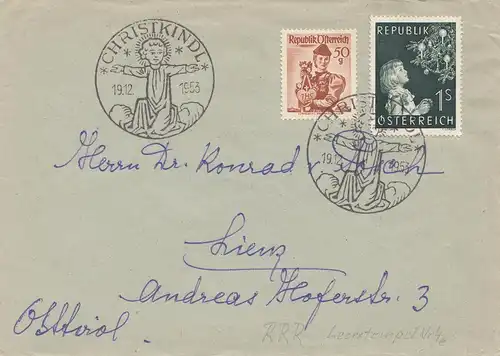 CHRISTKINDL
19.12 1953
Republik Österreich
50 g
REPUBLIK
1S
ÖSTERREICH
CHRISTKINDL
19.12 1953
Herrn Dr. Konrad v.
Lienz
Andreas Hoferstr. 3
Osttirol.
RRR